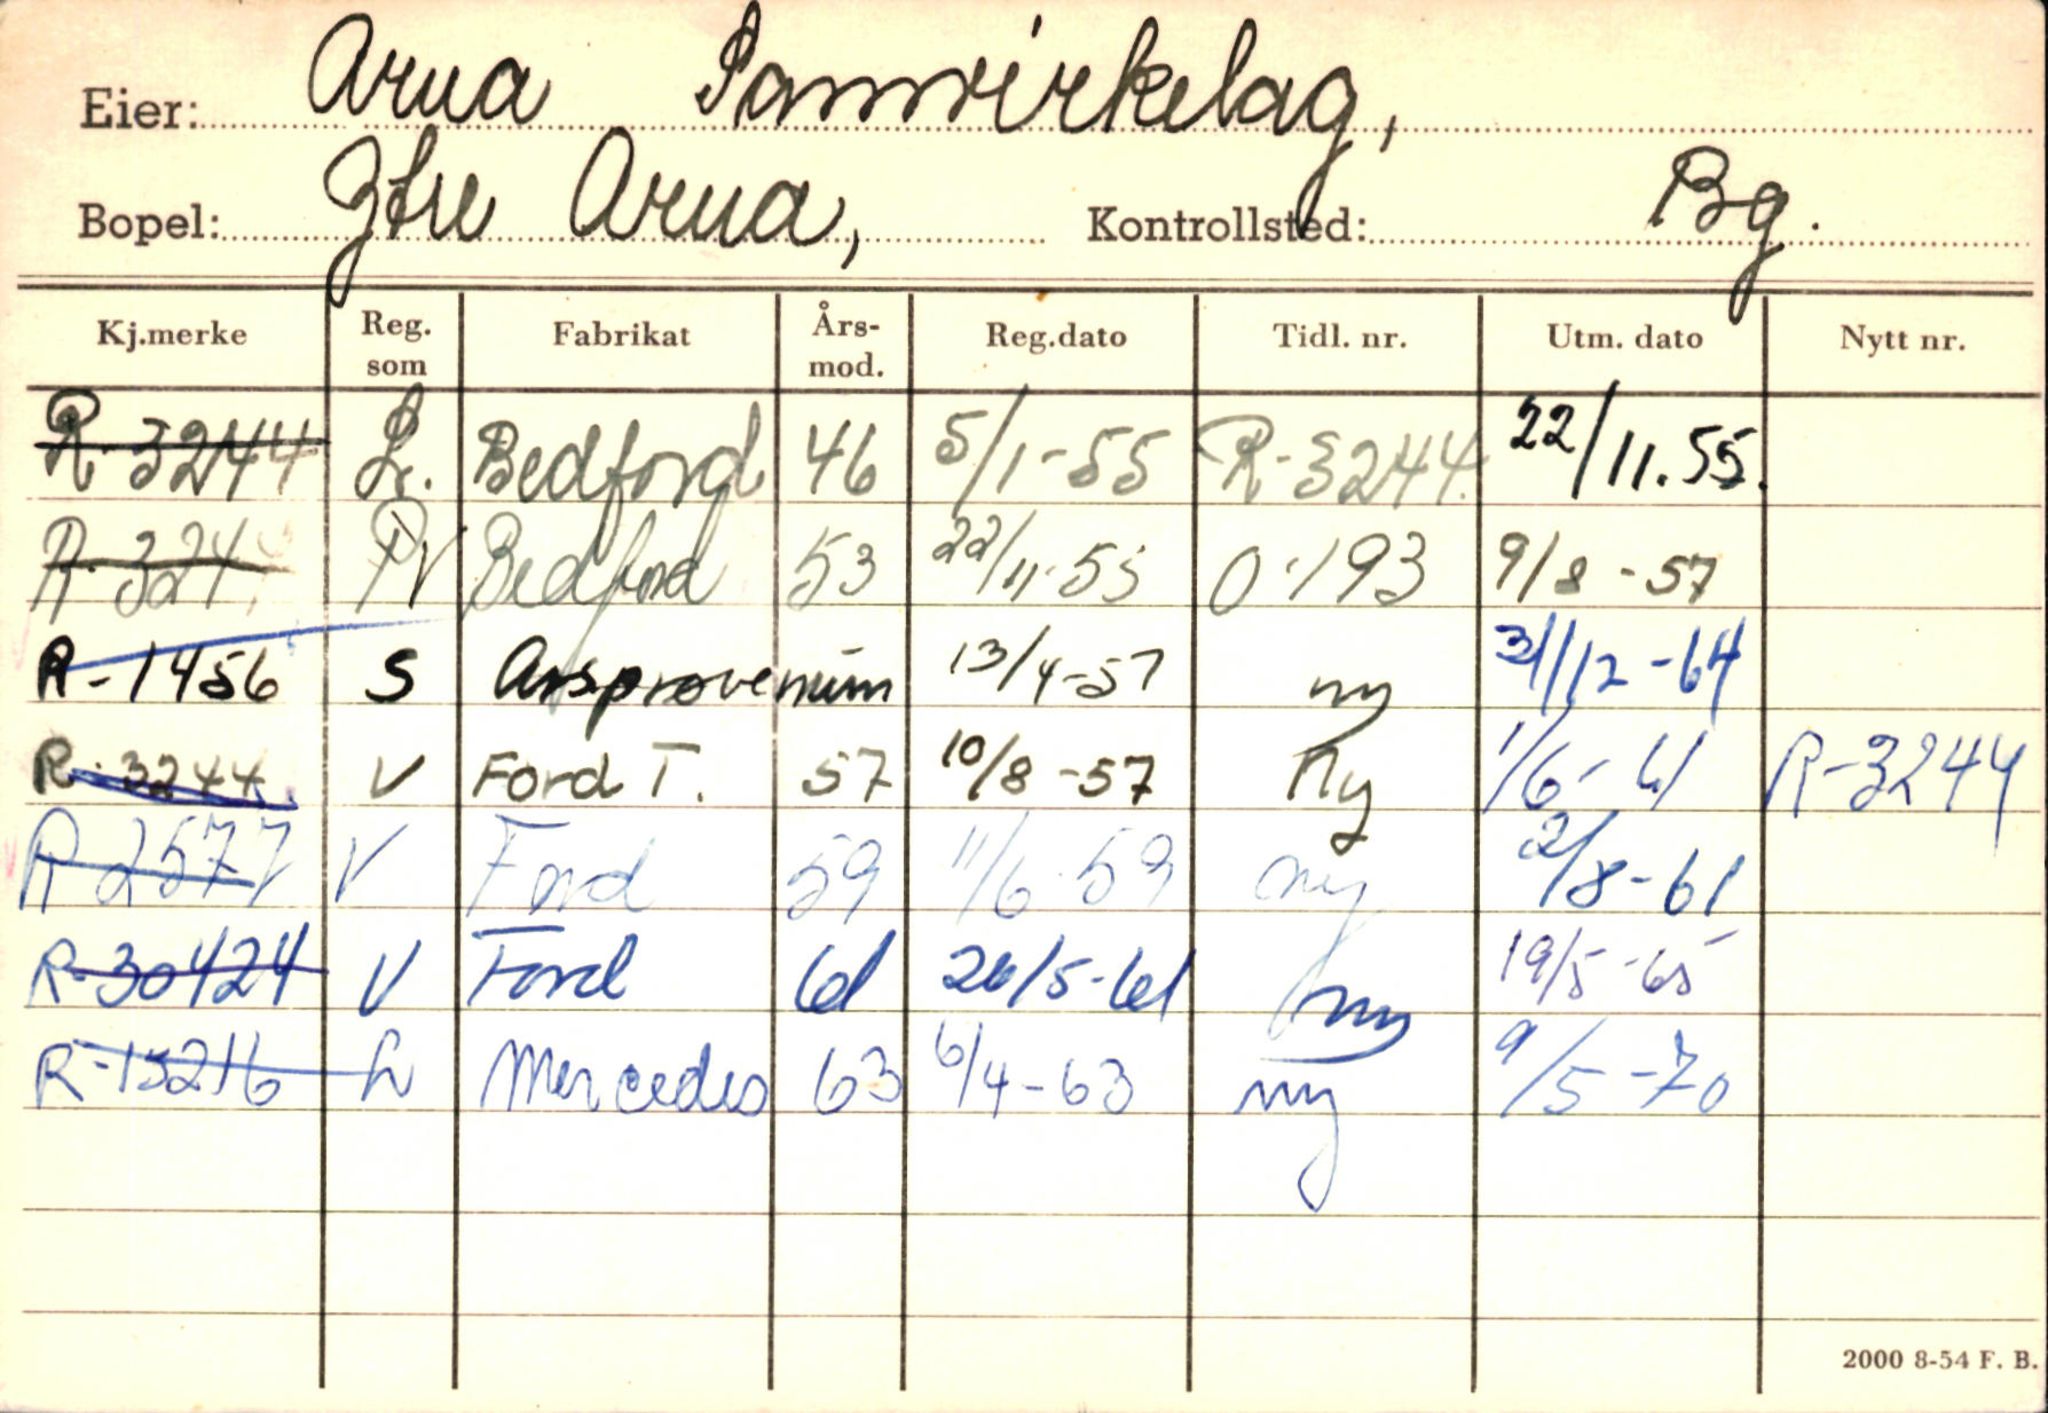 Eier: Arna Samvirkelag,
Bopel: Ytre Arna, Kontrollsted: Bg.
Kj.merke Reg. som Fabrikat Års- mod. Reg.dato Tidl. nr. Utm. dato Nytt nr.
R-3244 L. Bedford 46 5/1-55 R-3244. 22/11.55.
R-324 Bedford 53 22/11-55 O-193 9/8-57
R-1456 S Årsprøvenum 13/4-57 ny 31/12-64
R-3244 V Ford T. 57 10/8-57 Ny 1/6-61 R-3244
R-2577 V Ford 59 11/6-59 ny 2/8-61
R-30424 V Ford 61 26/5-61 ny 19/5-65
R-15216 L Mercedes 63 6/4-63 ny 9/5-70
2000 8-54 F. B.